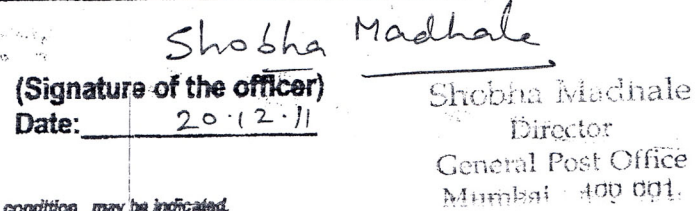 Shobha Madhale
(Signature of the officer)
Date: 20.12.11
Shobha Madhale
Director
General Post Office
Mumbai 400 001.
condition may be indicated.